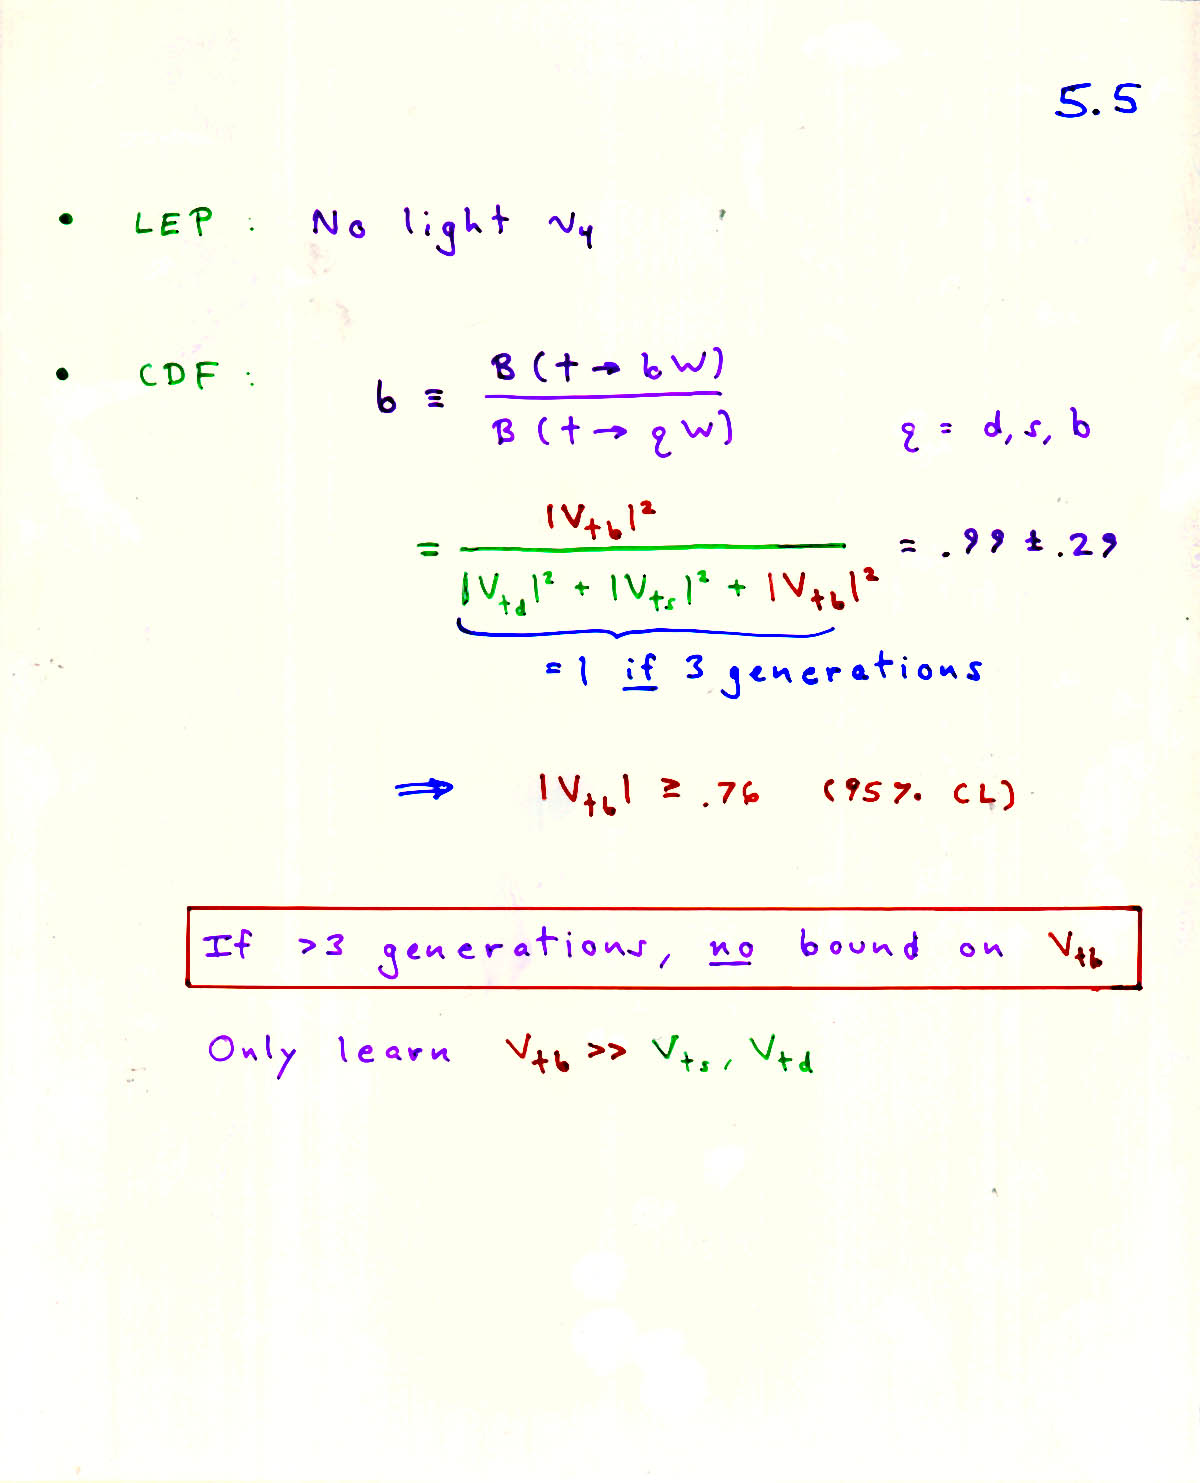 5.5
• LEP : No light ν₄
• CDF : b ≡ B(t → bW) / B(t → qW) q = d, s, b
= |V_tb|² / |V_td|² + |V_ts|² + |V_tb|² = .99 ± .29
= 1 if 3 generations
⇒ |V_tb| ≥ .76 (95% CL)
If >3 generations, no bound on V_tb
Only learn V_tb >> V_ts, V_td